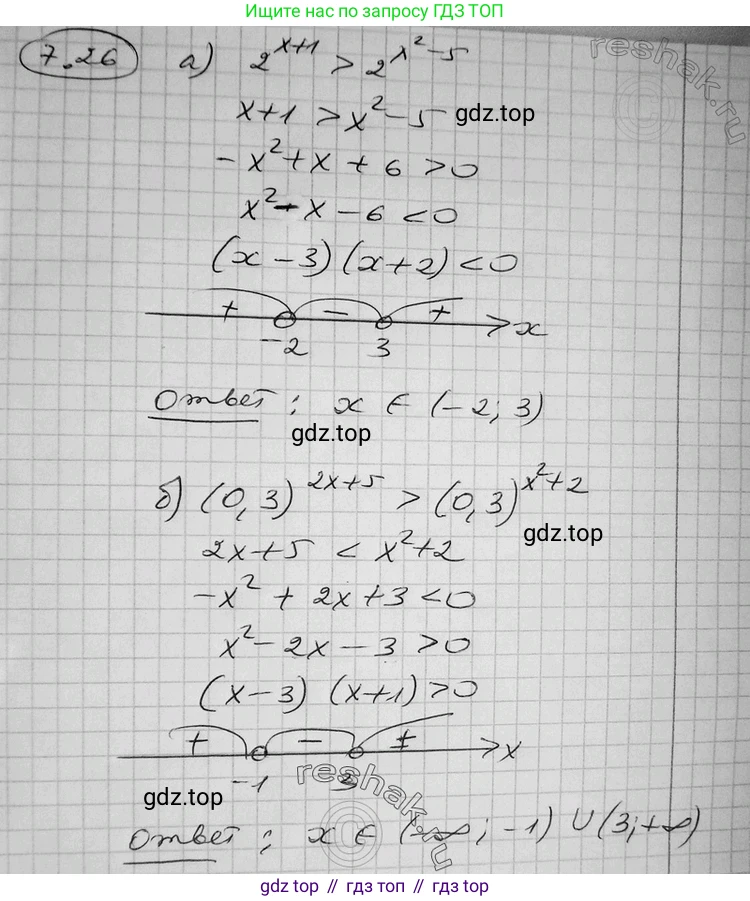 Ищите нас по запросу ГДЗ ТОП
7.26 а) 2^{x+1} > 2^{x²-5}
reshak.ru
x+1 > x²-5 gdz.top
-x²+x+6 >0
x²-x-6 <0
(x-3)(x+2)<0
+ - + x
-2 3
Ответ: x ∈ (-2; 3)
gdz.top
б) (0,3)^{2x+5} > (0,3)^{x²+2}
gdz.top
2x+5 < x²+2
-x²+2x+3<0
x²-2x-3>0
(x-3)(x+1)>0
+ - + x
-1 3
reshak.ru
gdz.top
Ответ: x ∈ (-∞; -1) ∪ (3; +∞)
gdz.top // гдз топ // gdz.top